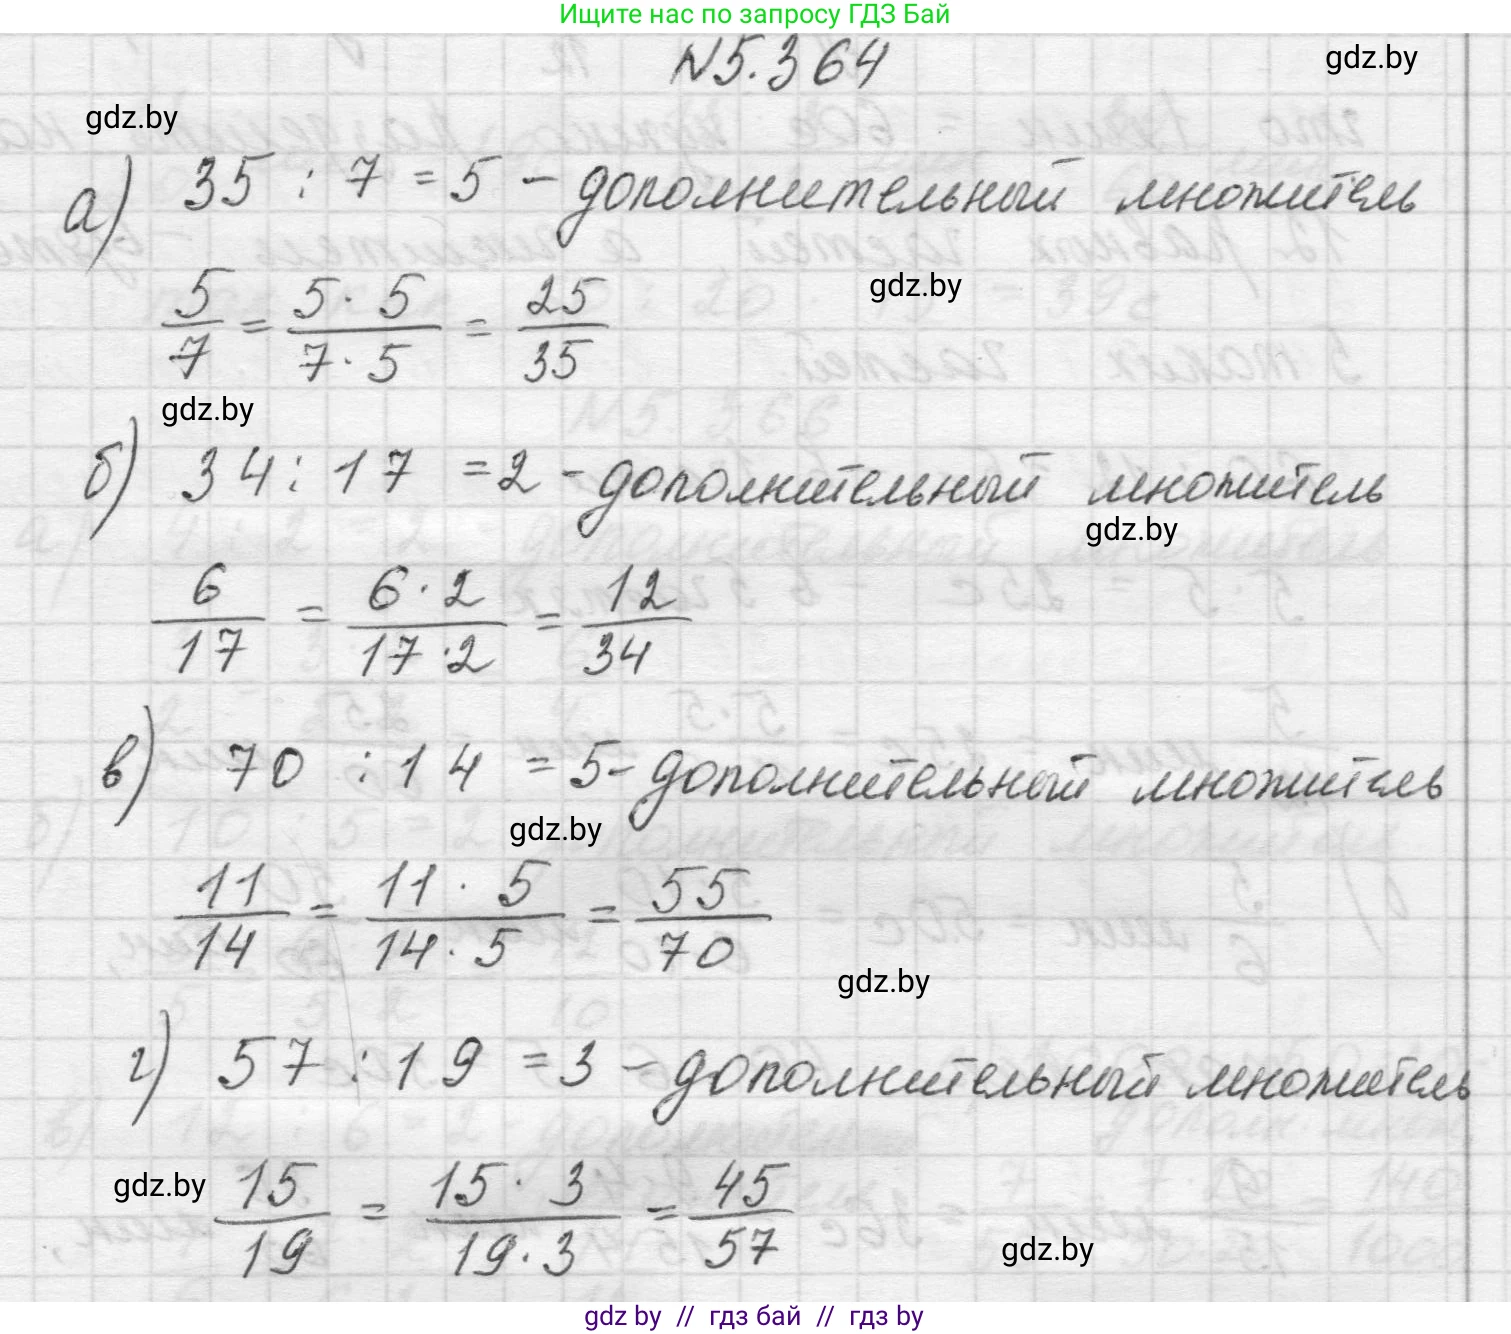 Ищите нас по запросу ГДЗ Бай
N5.364
gdz.by
gdz.by
а) 35 : 7 = 5 - дополнительный множитель
5/7 = 5 · 5/7 · 5 = 25/35
gdz.by
gdz.by
б) 34 : 17 = 2 - дополнительный множитель
gdz.by
6/17 = 6 · 2/17 · 2 = 12/34
в) 70 : 14 = 5 - дополнительный множитель
gdz.by
11/14 = 11 · 5/14 · 5 = 55/70
gdz.by
г) 57 : 19 = 3 - дополнительный множитель
gdz.by
15/19 = 15 · 3/19 · 3 = 45/57
gdz.by
gdz by // гдз бай // гдз by